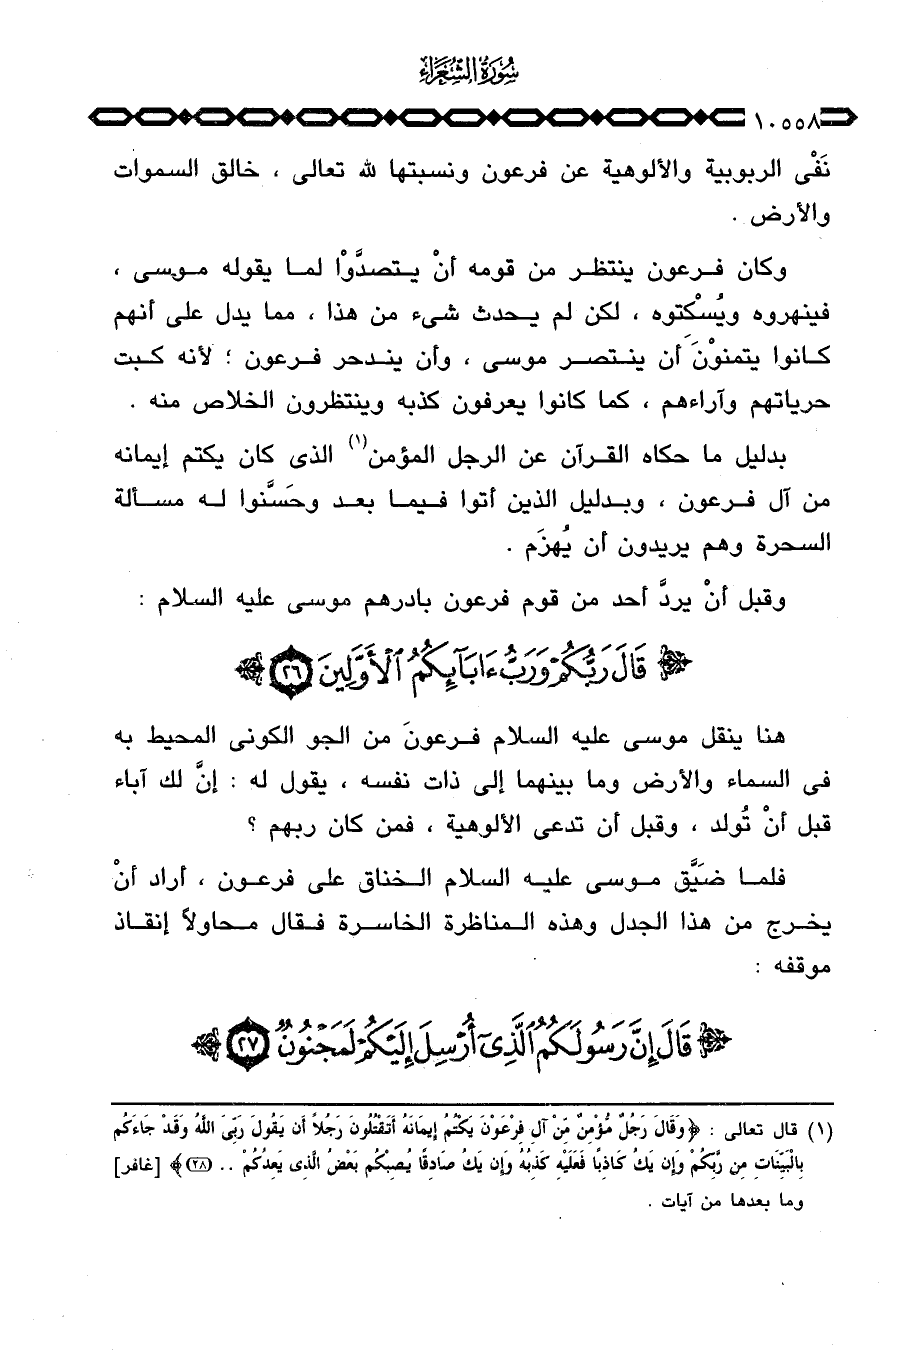 سُورَةُ الشُّعَرَاءِ
١٠٥٥٨
نَفْى الربوبية والألوهية عن فرعون ونسبتها لله تعالى ، خالق السموات
والأرض .
وكان فرعون ينتظر من قومه أنْ يتصدَّوْا لما يقوله موسى ،
فينهروه ويُسْكتوه ، لكن لم يحدث شىء من هذا ، مما يدل على أنهم
كانوا يتمنوْنَ أن ينتصر موسى ، وأن يندحر فرعون ؛ لأنه كبت
حرياتهم وآراءهم ، كما كانوا يعرفون كذبه وينتظرون الخلاص منه .
بدليل ما حكاه القرآن عن الرجل المؤمن(١) الذى كان يكتم إيمانه
من آل فرعون ، وبدليل الذين أتوا فيما بعد وحَسَّنوا له مسألة
السحرة وهم يريدون أن يُهزَم .
وقبل أنْ يردَّ أحد من قوم فرعون بادرهم موسى عليه السلام :
﴿ قَالَ رَبُّكُمْ وَرَبُّ ءَابَآئِكُمُ ٱلْأَوَّلِينَ ٢٦ ﴾
هنا ينقل موسى عليه السلام فرعونَ من الجو الكونى المحيط به
فى السماء والأرض وما بينهما إلى ذات نفسه ، يقول له : إنَّ لك آباء
قبل أنْ تُولد ، وقبل أن تدعى الألوهية ، فمن كان ربهم ؟
فلما ضيَّق موسى عليه السلام الخناق على فرعون ، أراد أنْ
يخرج من هذا الجدل وهذه المناظرة الخاسرة فقال محاولاً إنقاذ
موقفه :
﴿ قَالَ إِنَّ رَسُولَكُمُ ٱلَّذِىٓ أُرْسِلَ إِلَيْكُمْ لَمَجْنُونٌ ٢٧ ﴾
(١) قال تعالى : ﴿وَقَالَ رَجُلٌ مُّؤْمِنٌ مِّنْ آلِ فِرْعَوْنَ يَكْتُمُ إِيمَانَهُ أَتَقْتُلُونَ رَجُلاً أَن يَقُولَ رَبِّىَ اللَّهُ وَقَدْ جَاءَكُم
بِالْبَيِّنَاتِ مِن رَّبِّكُمْ وَإِن يَكُ كَاذِبًا فَعَلَيْهِ كَذِبُهُ وَإِن يَكُ صَادِقًا يُصِبْكُم بَعْضُ الَّذِى يَعِدُكُمْ .. (٢٨)﴾ [غافر]
وما بعدها من آيات .